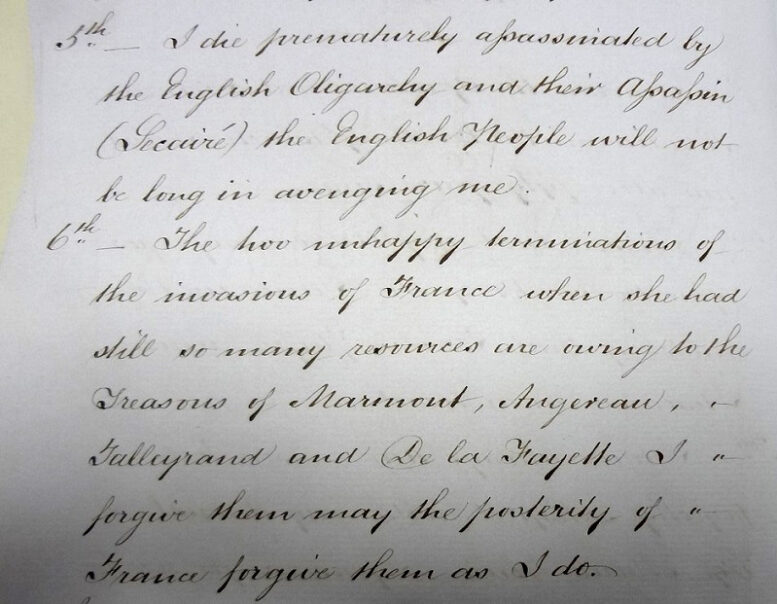 5th — I die prematurely assassinated by
the English Oligarchy and their Assassin
(Secairé) the English People will not
be long in avenging me.
6th — The two unhappy terminations of
the invasions of France when she had
still so many resources are owing to the
Treasons of Marmont, Angereau, "
Talleyrand and De la Fayette I "
forgive them may the posterity of "
France forgive them as I do.